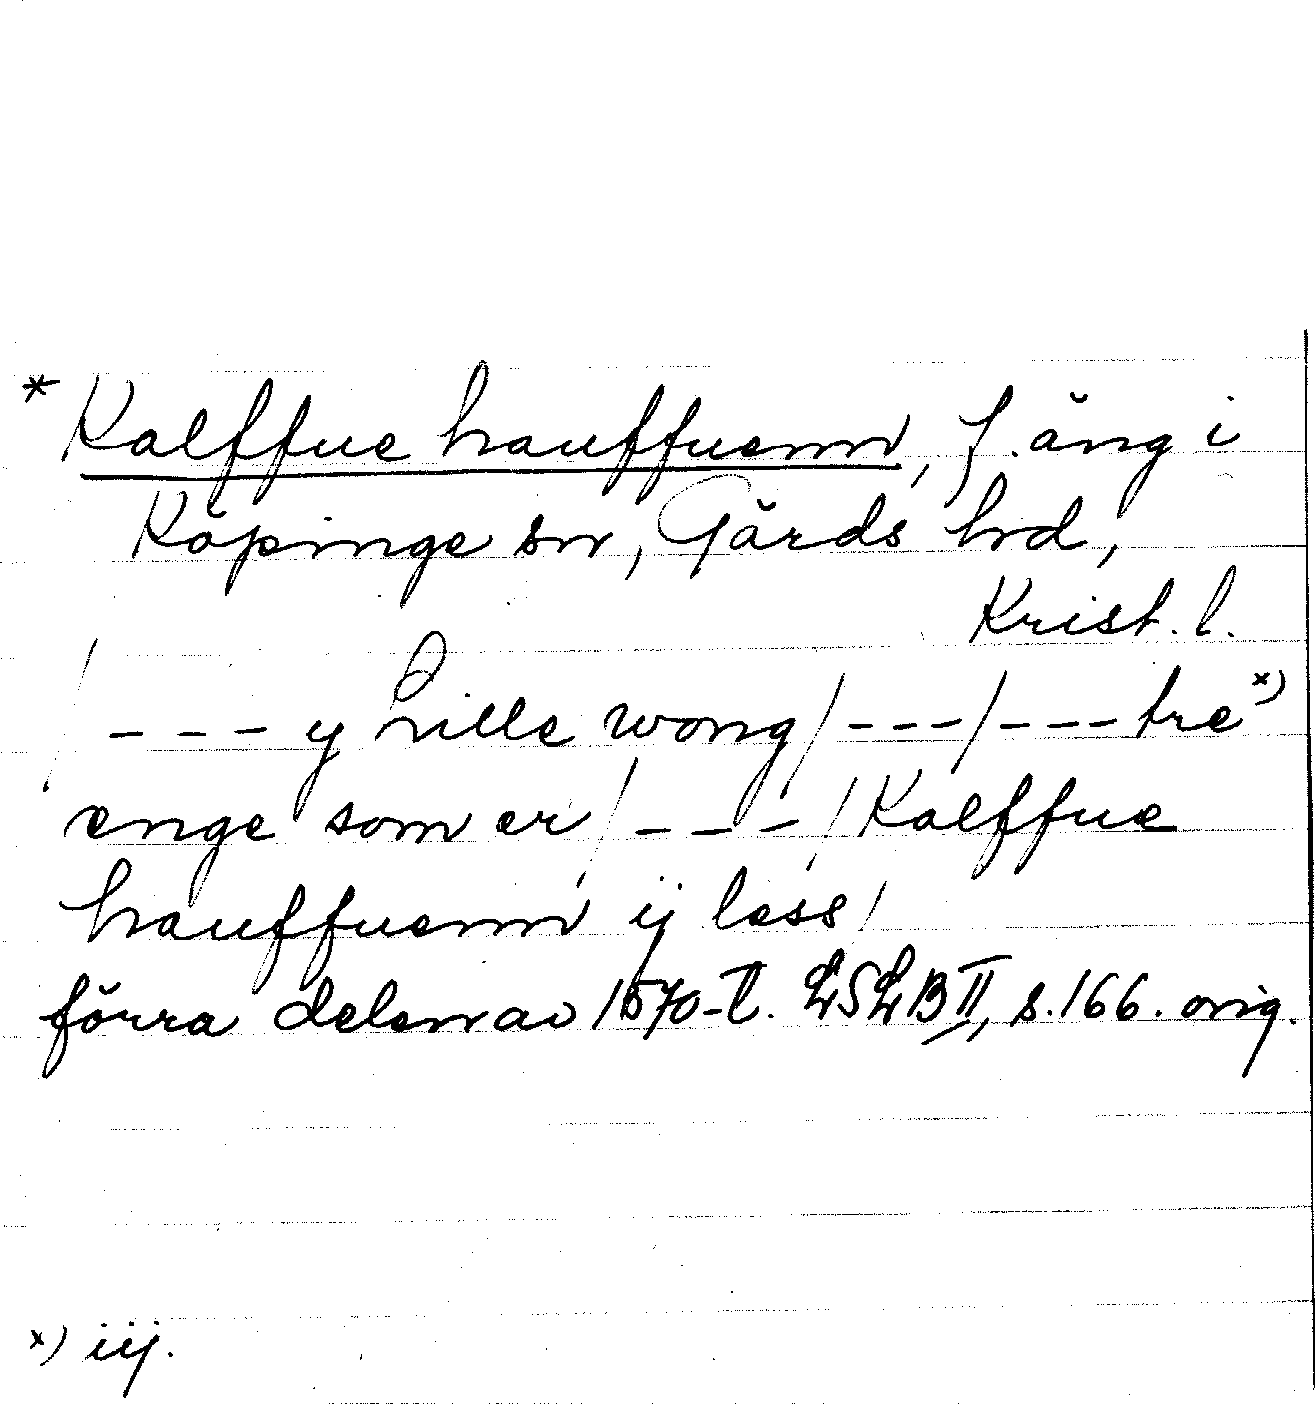 * Kalffue hauffuenn, f. äng i
Köpinge sn, Gärds hd,
Krist. l.
/ --- y Lille wong / --- / --- tre x)
enge som er / --- / Kalffue
hauffuenn ijless /
förra delen av 1570-t. LSLB II, s. 166. orig.
x) iij.